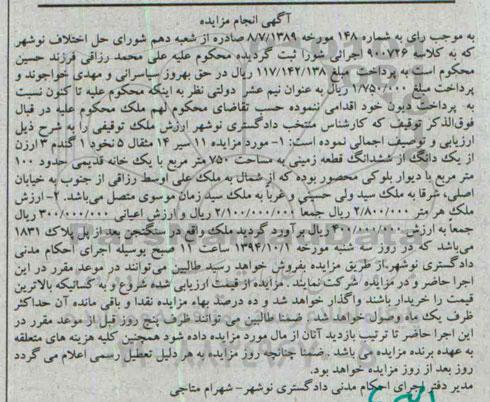 آگهی انجام مزایده
به موجب رای به شماره ۱۴۸ مورخه ۸/۷/۱۳۸۹ صادره از شعبه دهم شورای حل اختلاف نوشهر
که به کلاسه ۹۰۰۷۲۶ اجرائی شورا ثبت گردیده محکوم علیه علی محمد رزاقی فرزند حسین
محکوم است به پرداخت مبلغ ۱۱۷/۱۴۲/۱۳۸ ریال در حق بهروز سیاسرانی و مهدی خواجوند و
پرداخت مبلغ ۱/۷۵۰/۰۰۰ ریال به عنوان نیم عشر دولتی نظر به اینکه محکوم علیه تا کنون نسبت
به پرداخت دیون خود اقدامی ننموده حسب تقاضای محکوم لهم ملک محکوم علیه در قبال
فوق‌الذکر توقیف که کارشناس منتخب دادگستری نوشهر ارزش ملک توقیفی را به شرح ذیل
ارزیابی و توصیف اجمالی نموده است: ۱- مورد مزایده ۱۱ سیر ۱۴ مثقال ۵ نخود ۱ گندم ۳ ارزن
از یک دانگ از ششدانگ قطعه زمینی به مساحت ۷۵۰ متر مربع با یک خانه قدیمی حدود ۱۰۰
متر مربع با دیوار بلوکی محصور بوده که از شمال به ملک علی اوسط رزاقی از جنوب به خیابان
اصلی، شرقا به ملک سید ولی حسینی و غربا به ملک سید زمان موسوی متصل می‌باشد. ۲- ارزش
ملک هر متر ۲/۸۰۰/۰۰۰ ریال جمعا ۲/۱۰۰/۰۰۰/۰۰۰ ریال و ارزش اعیانی ۳۰۰/۰۰۰/۰۰۰ ریال
جمعا به ارزش ۴۰۰/۰۰۰/۰۰۰ ریال برآورد گردید ملک واقع در سنگتجن بعد از پل پلاک ۱۸۳۱
می‌باشد که در روز سه شنبه مورخه ۱۳۹۴/۱۰/۱ ساعت ۱۱ صبح بوسیله اجرای احکام مدنی
دادگستری نوشهر از طریق مزایده بفروش خواهد رسید طالبین می‌توانند در موعد مقرر در این
اجرا حاضر و در مزایده شرکت نمایند. مزایده از قیمت ارزیابی شده شروع و به کسانیکه بالاترین
قیمت را خریدار باشند واگذار خواهد شد و ده درصد بهاء مزایده نقدا و باقی مانده آن حداکثر
ظرف یک ماه وصول خواهد شد. ضمنا طالبین می توانند ظرف پنج روز قبل از موعد مقرر در
این اجرا حاضر تا ترتیب بازدید آنان از مال مورد مزایده داده شود همچنین کلیه هزینه های متعلقه
به عهده برنده مزایده می باشد. ضمنا چنانچه روز مزایده به هر دلیل تعطیل رسمی اعلام می گردد
روز بعد از روز مزایده خواهد بود.
مدیر دفتر اجرای احکام مدنی دادگستری نوشهر - شهرام متاجی